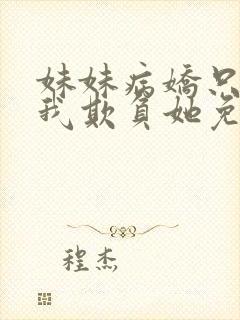 妹妹病嬌只
我欺負她免
程杰